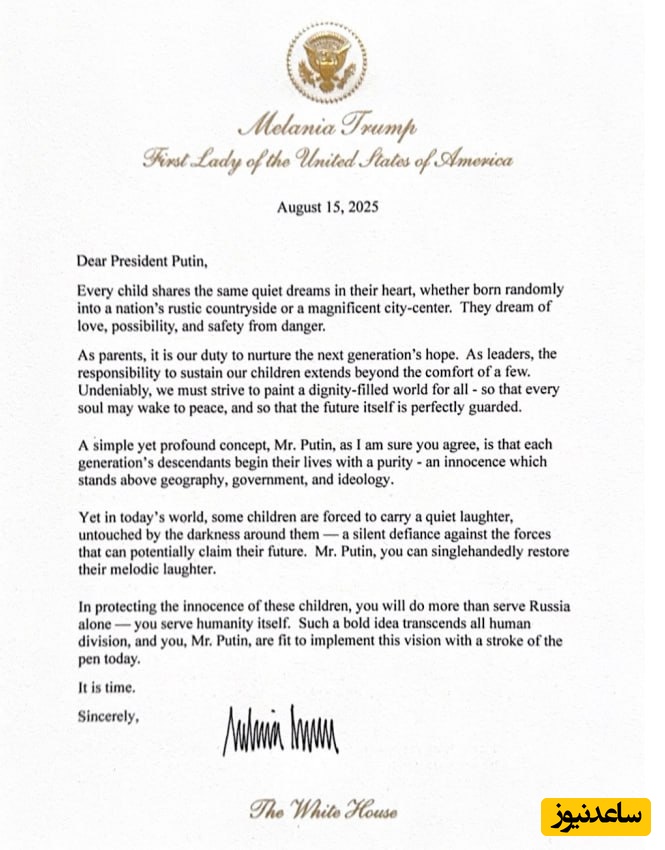 Melania Trump
First Lady of the United States of America
August 15, 2025
Dear President Putin,
Every child shares the same quiet dreams in their heart, whether born randomly
into a nation's rustic countryside or a magnificent city-center.  They dream of
love, possibility, and safety from danger.
As parents, it is our duty to nurture the next generation's hope.  As leaders, the
responsibility to sustain our children extends beyond the comfort of a few.
Undeniably, we must strive to paint a dignity-filled world for all - so that every
soul may wake to peace, and so that the future itself is perfectly guarded.
A simple yet profound concept, Mr. Putin, as I am sure you agree, is that each
generation's descendants begin their lives with a purity - an innocence which
stands above geography, government, and ideology.
Yet in today's world, some children are forced to carry a quiet laughter,
untouched by the darkness around them — a silent defiance against the forces
that can potentially claim their future.  Mr. Putin, you can singlehandedly restore
their melodic laughter.
In protecting the innocence of these children, you will do more than serve Russia
alone — you serve humanity itself.  Such a bold idea transcends all human
division, and you, Mr. Putin, are fit to implement this vision with a stroke of the
pen today.
It is time.
Sincerely,
The White House
ساعدنیوز